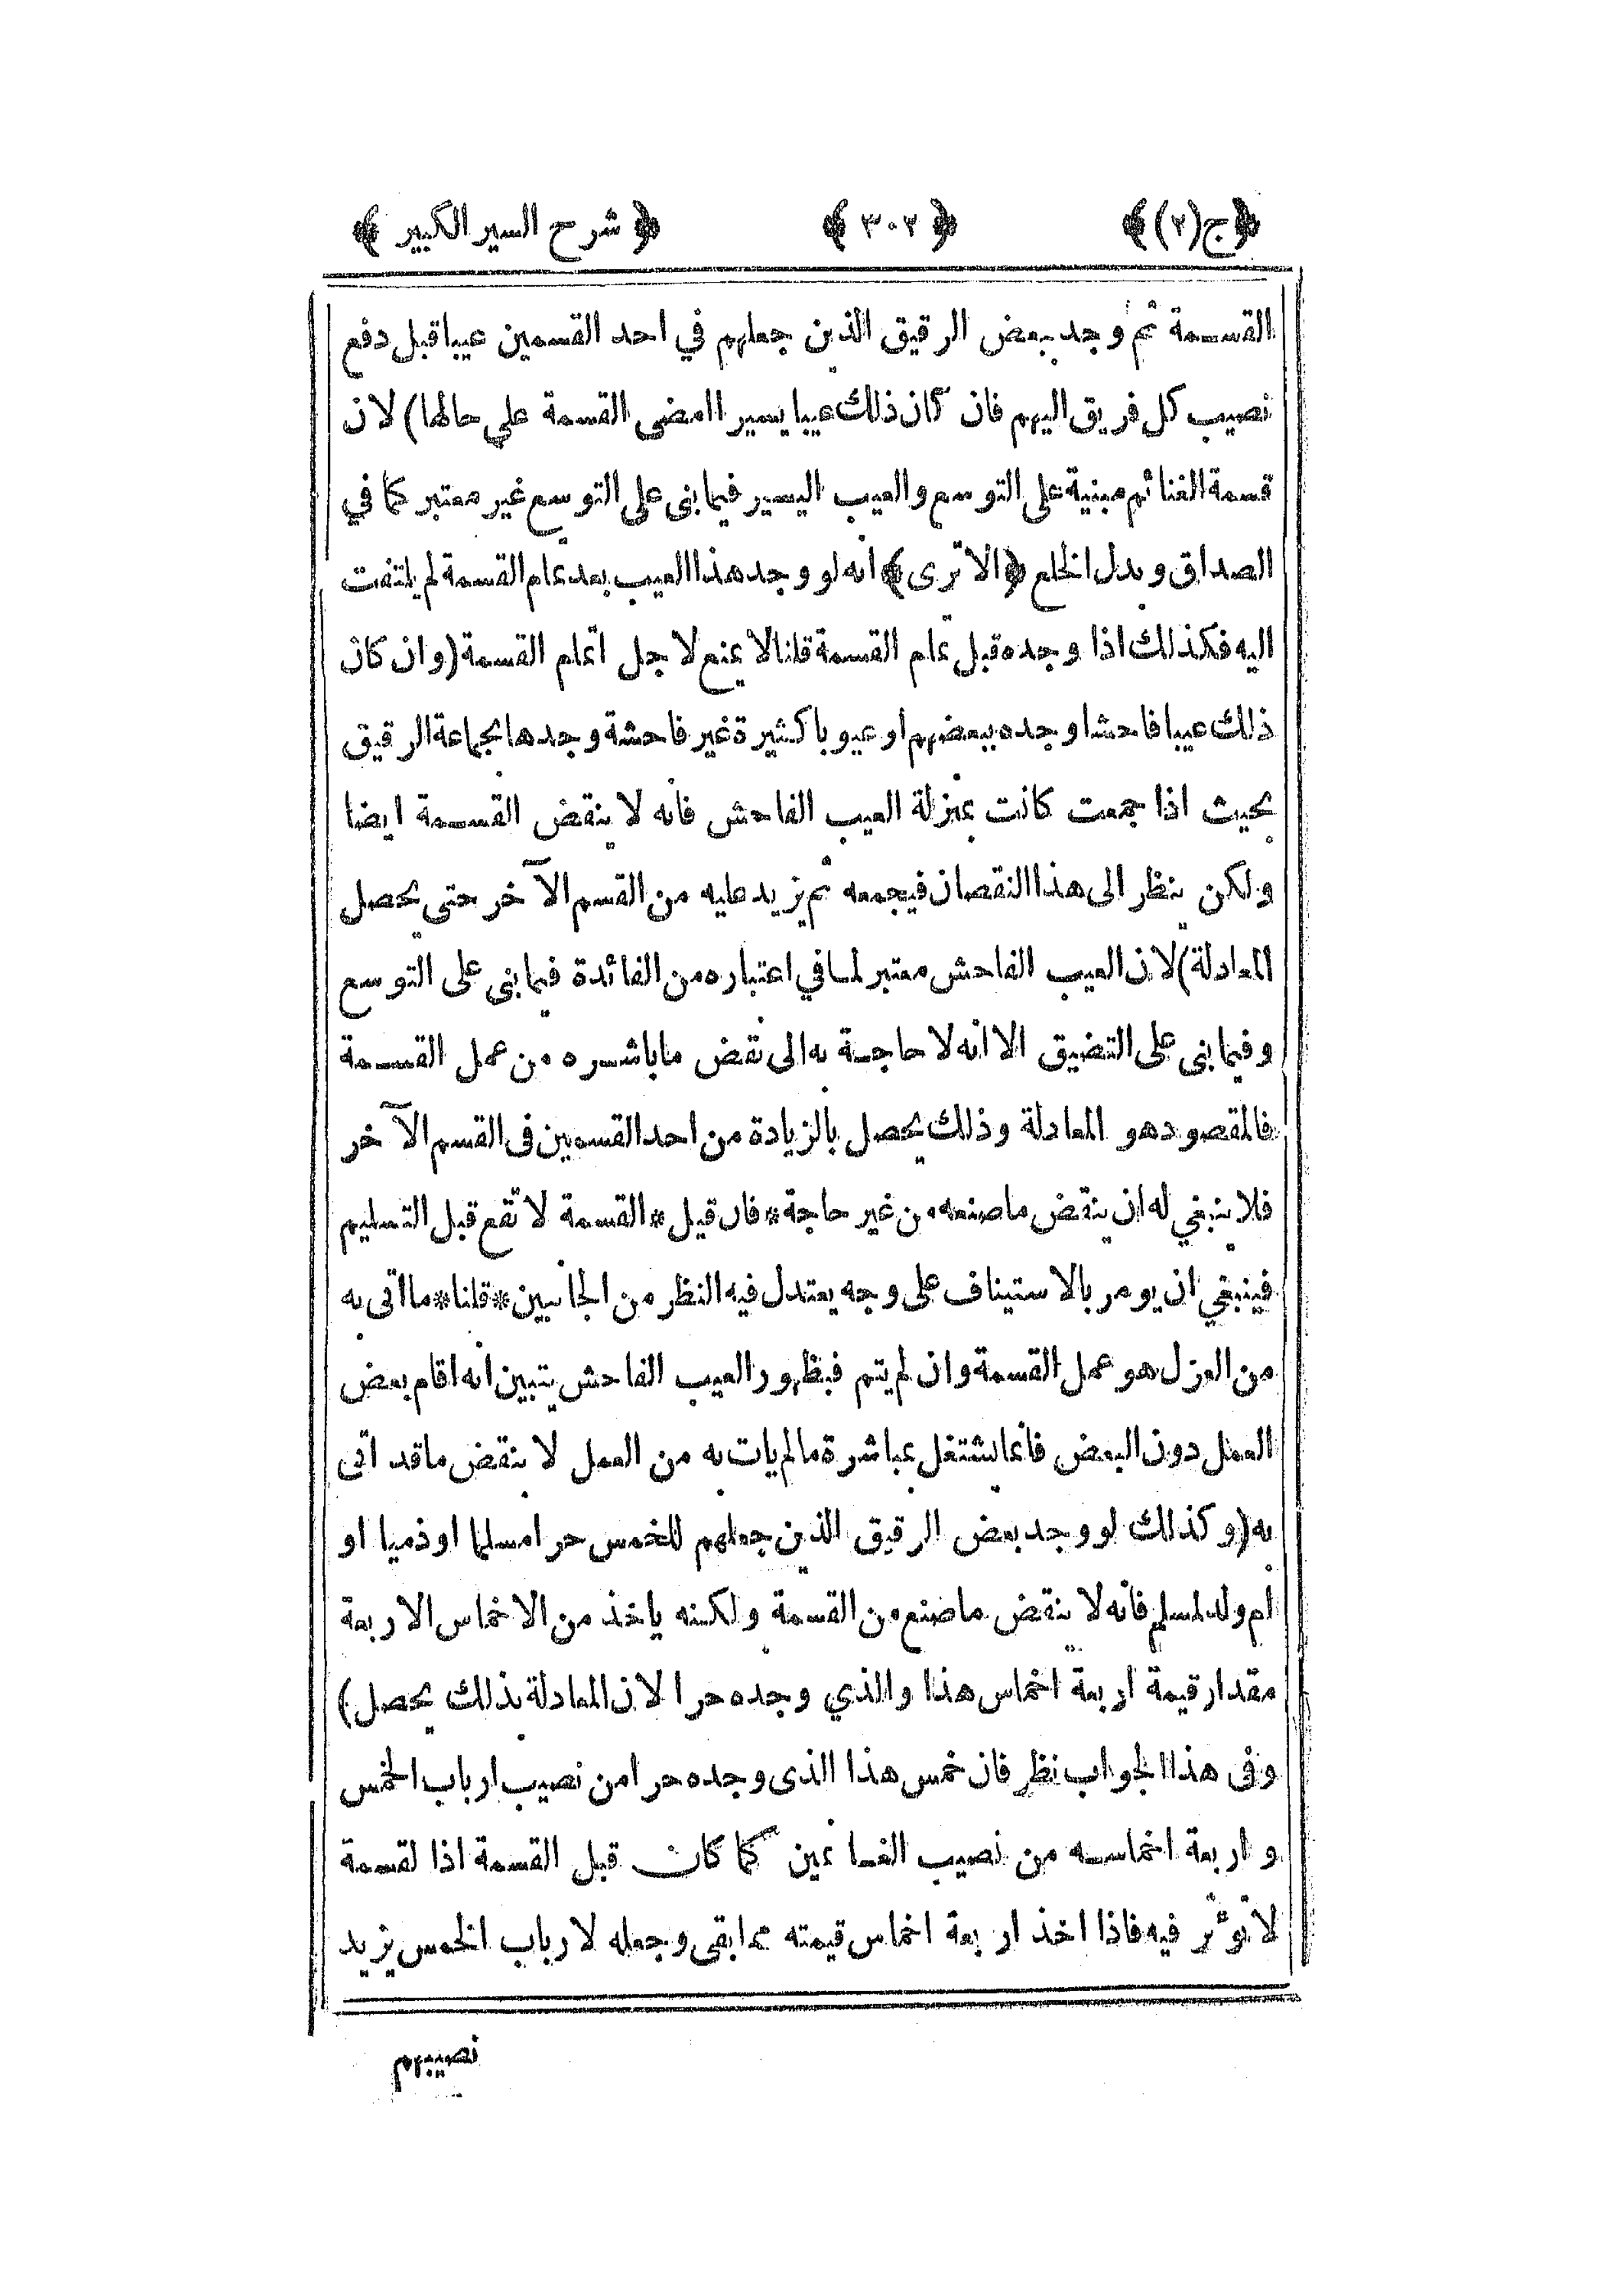 ﴿ج(٢)﴾ ﴿٣٠٢﴾ ﴿شرح السير الكبير﴾
القسمة ثم وجد ببعض الرقيق الذين جعلهم في احد القسمين عيبا قبل دفع
نصيب كل فريق اليهم فان كان ذلك عيبا يسيرا امضى القسمة علي حالها) لان
قسمة الغنائم مبنية على التوسع والعيب اليسير فيما بنى على التوسع غير معتبر كما في
الصداق وبدل الخلع ﴿الا ترى﴾ انه لو وجد هذا العيب بعد تمام القسمة لم يلتفت
اليه فكذلك اذا وجده قبل تمام القسمة قلنا لا يمنع لاجل اتمام القسمة (وان كان
ذلك عيبا فاحشا وجده ببعضهم او عيوبا كثيرة غير فاحشة وجدها بجماعة الرقيق
بحيث اذا جمعت كانت بمنزلة العيب الفاحش فانه لا ينقض القسمة ايضا
ولكن ينظر الى هذا النقصان فيجمعه ثم يزيد عليه من القسم الآخر حتى يحصل
المعادلة) لان العيب الفاحش معتبر لما في اعتباره من الفائدة فيما بنى على التوسع
وفيما بنى على التضيق الا انه لا حاجة به الى نقض ما باشره من عمل القسمة
فالمقصود هو المعادلة وذلك يحصل بالزيادة من احد القسمين فى القسم الآخر
فلا ينبغي له ان ينقض ما صنعه من غير حاجة * فان قيل * القسمة لا تقع قبل التسليم
فينبغي ان يومر بالاستيناف على وجه يعتدل فيه النظر من الجانبين * قلنا * ما اتى به
من العزل هو عمل القسمة وان لم يتم فبظهور العيب الفاحش يتبين انه اقام بعض
العمل دون البعض فانما يشتغل بمباشرة ما لم يات به من العمل لا بنقض ما قد اتى
به (وكذلك لو وجد بعض الرقيق الذين جعلهم للخمس حرا مسلما او ذميا او
ام ولد لمسلم فانه لا ينقض ما صنع من القسمة ولكنه ياخذ من الاخماس الاربعة
مقدار قيمة اربعة اخماس هذا والذي وجده حرا لان المعادلة بذلك يحصل)
وفى هذا الجواب نظر فان خمس هذا الذى وجده حرا من نصيب ارباب الخمس
واربعة اخماسه من نصيب الغانمين كما كان قبل القسمة اذا لقسمة
لا تؤثر فيه فاذا اخذ اربعة اخماس قيمته مما بقى وجعله لارباب الخمس يزيد
نصيبهم